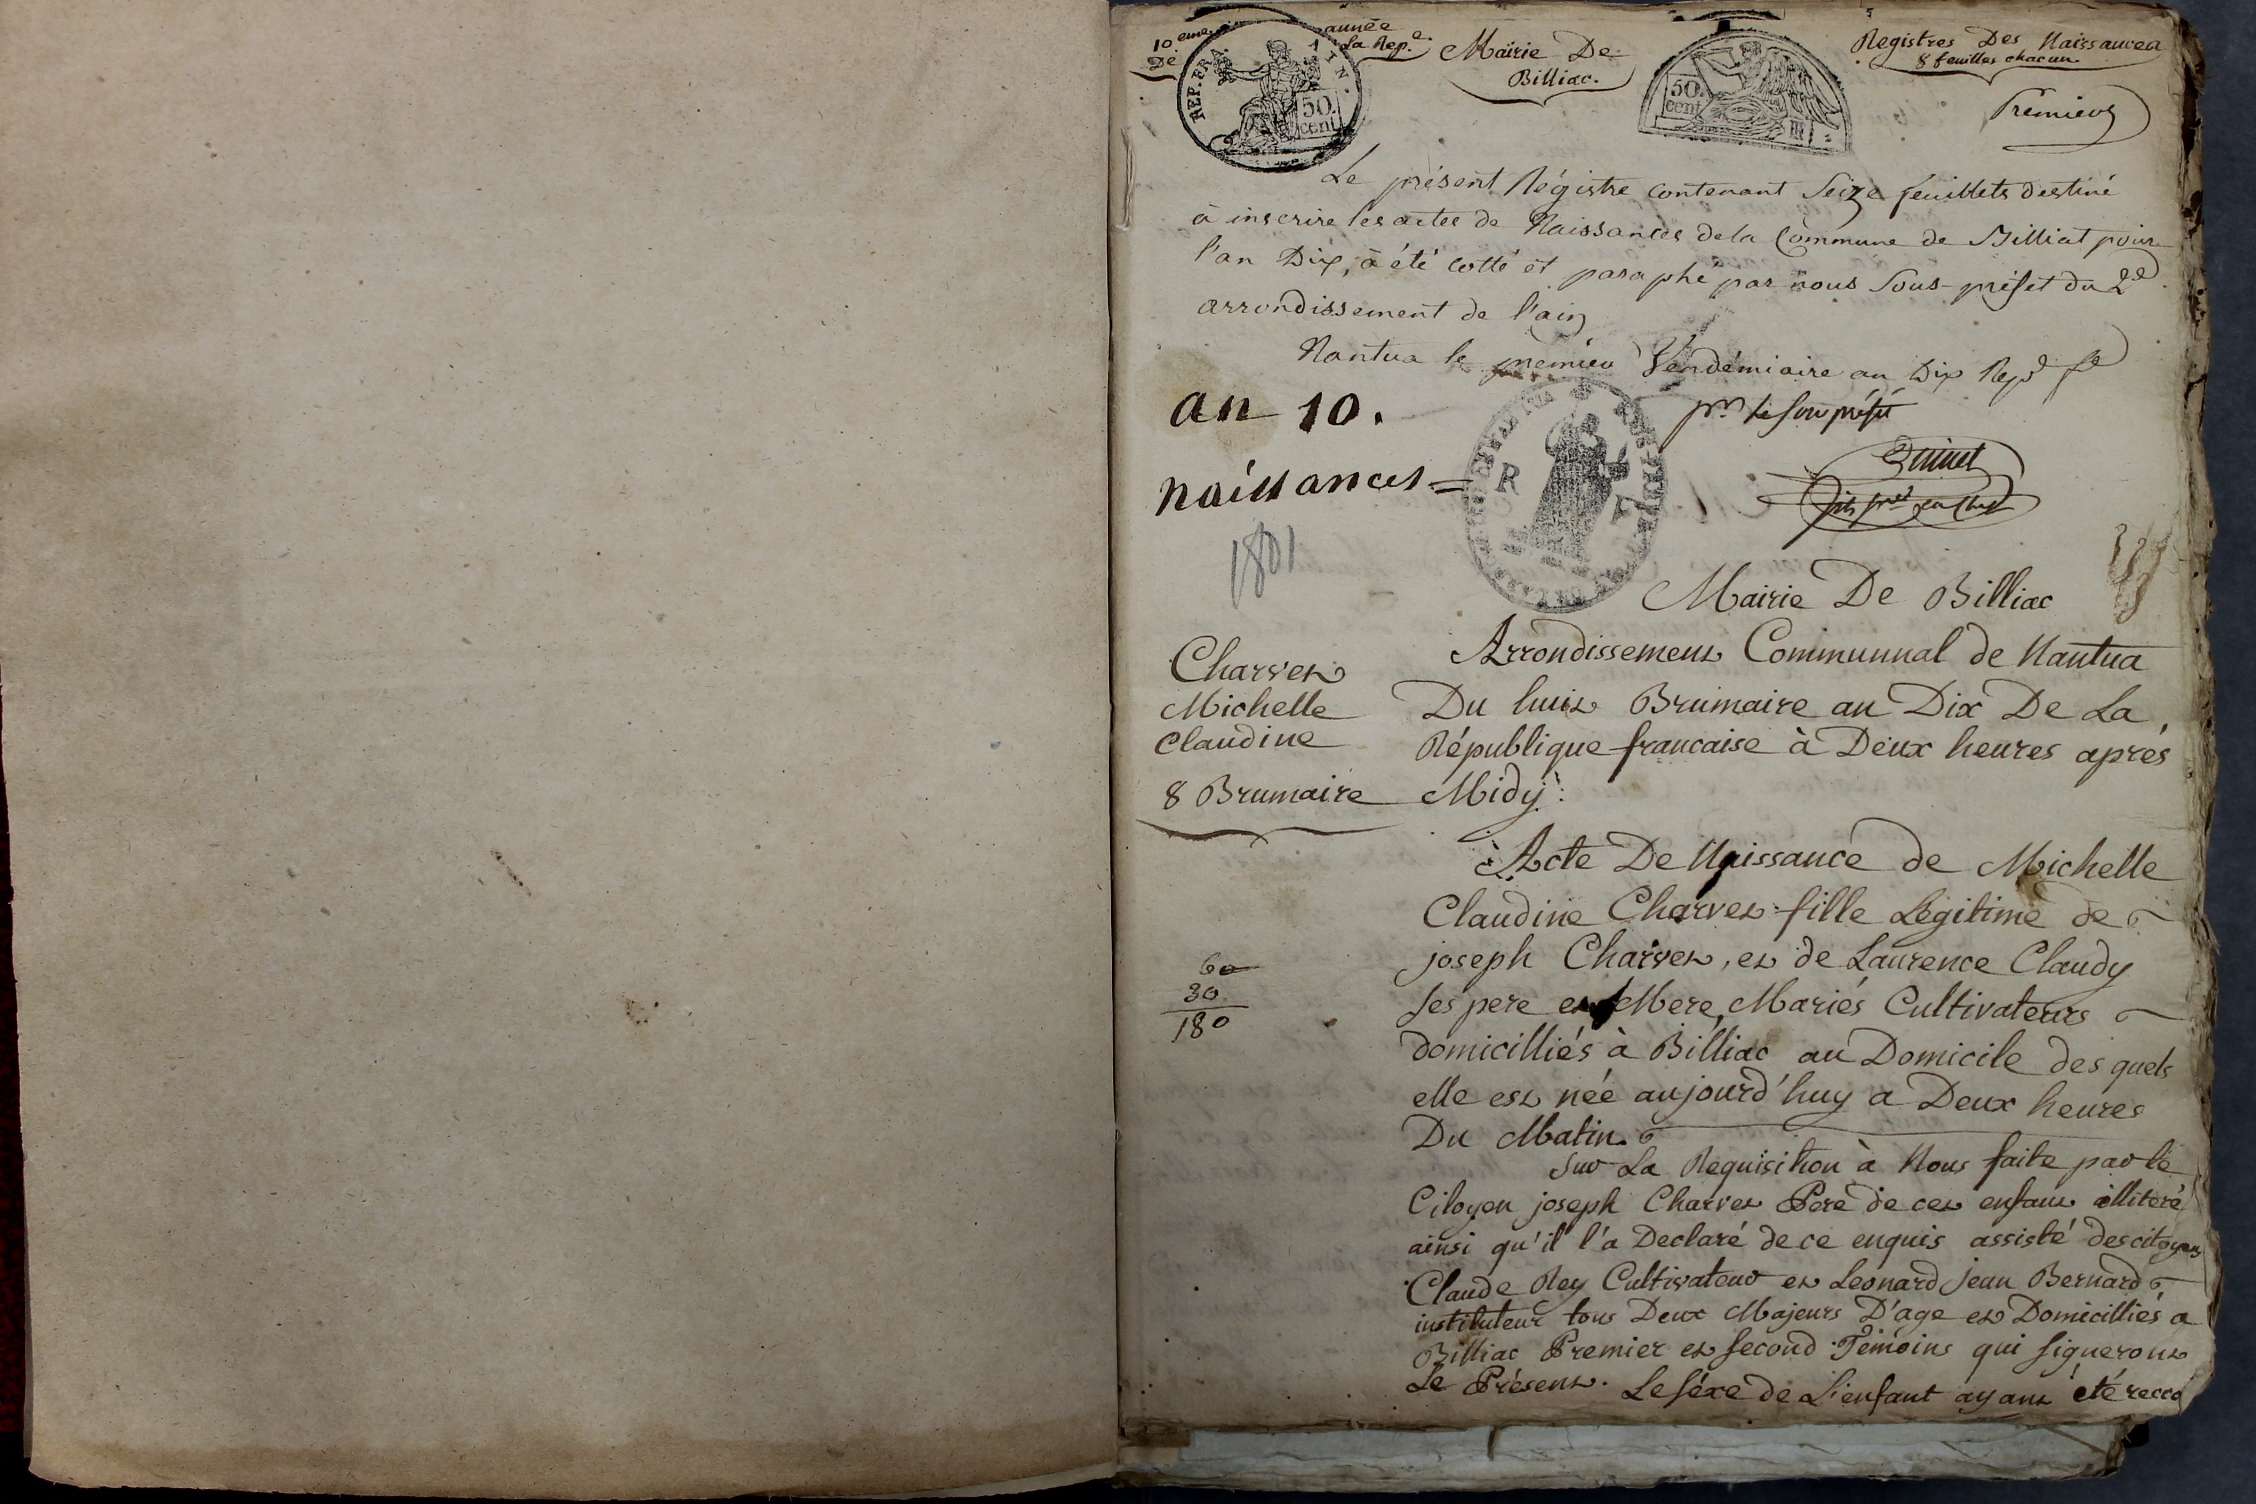 10eme année
De La Rep.e
REP. FRA. AIN.
50 cent
Mairie De
Billiac.
50 cent
Registres Des Naissances
8 feuilles chacun
Premier
Le présent Régistre contenant Seize feuillets destiné
à inscrire les actes de Naissances de la Commune de Billiat pour
l'an Dix, à été cotté et paraphé par nous Sous-préfet du 2e
arrondissement de l'ain
Nantua le premier Vendémiaire an Dix Repe fe
pr le sous préfet
an 10.
Naissances =
R F
1801
Mairie De Billiac
Arrondissement Communnal de Nantua
Charvet
Michelle
Claudine
8 Brumaire
Du huit Brumaire an Dix De La
République francaise à Deux heures aprés
Midy :
Acte De Naissance de Michelle
Claudine Charvet fille Légitime de
joseph Charvet, et de Laurence Claudy
ses pere et Mere, Mariés Cultivateurs
domicilliés à Billiac au Domicile des quels
elle est née aujourd'huy a Deux heures
Du Matin.
60
30
180
Sur La Requisition à Nous faite par le
Citoyen joseph Charvet Pere de cet enfant illiteré
ainsi qu'il l'a Declaré de ce enquis assisté des citoyens
Claude Rey Cultivateur et Leonard jean Bernard
instituteur tous Deux Majeurs D'age et Domicilliés a
Billiac Premier et second Témoins qui signeront
Le Présent. Le séxe de L'enfant ayant été recco